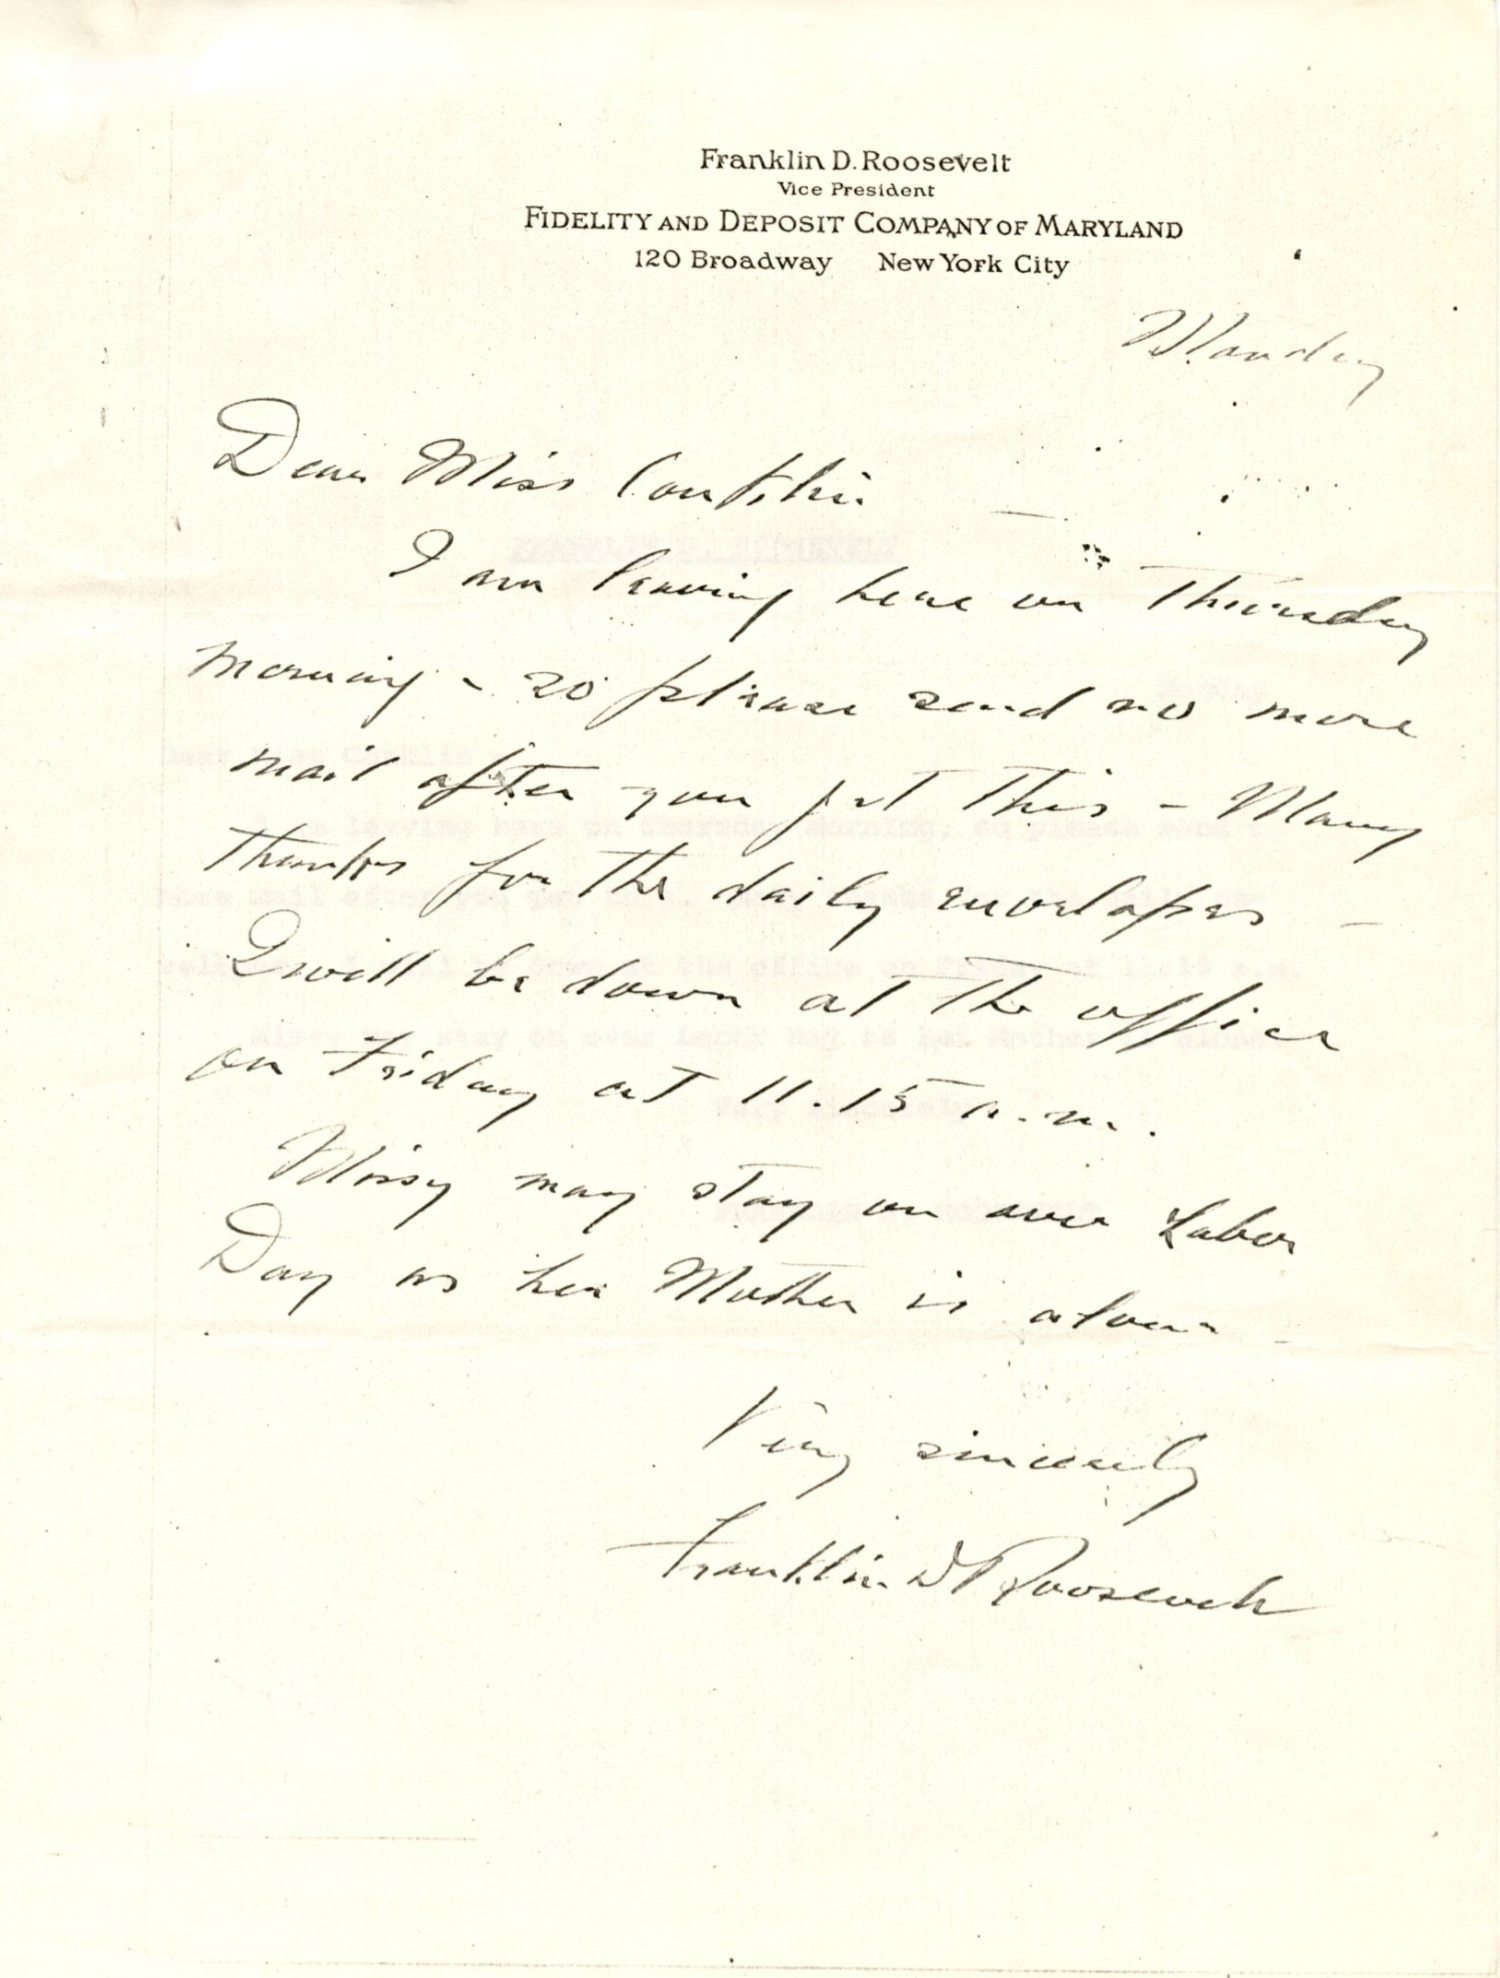 Franklin D. Roosevelt
Vice President
FIDELITY AND DEPOSIT COMPANY OF MARYLAND
120 Broadway New York City
Monday
Dear Miss Conklin -
I am leaving here on Thursday
morning - so please send no more
mail after you get this - Many
thanks for the daily envelopes -
I will be down at the office
on Friday at 11.15 a.m.
Missy may stay on over Labor
Day as her Mother is alone -
Very sincerely
Franklin D Roosevelt